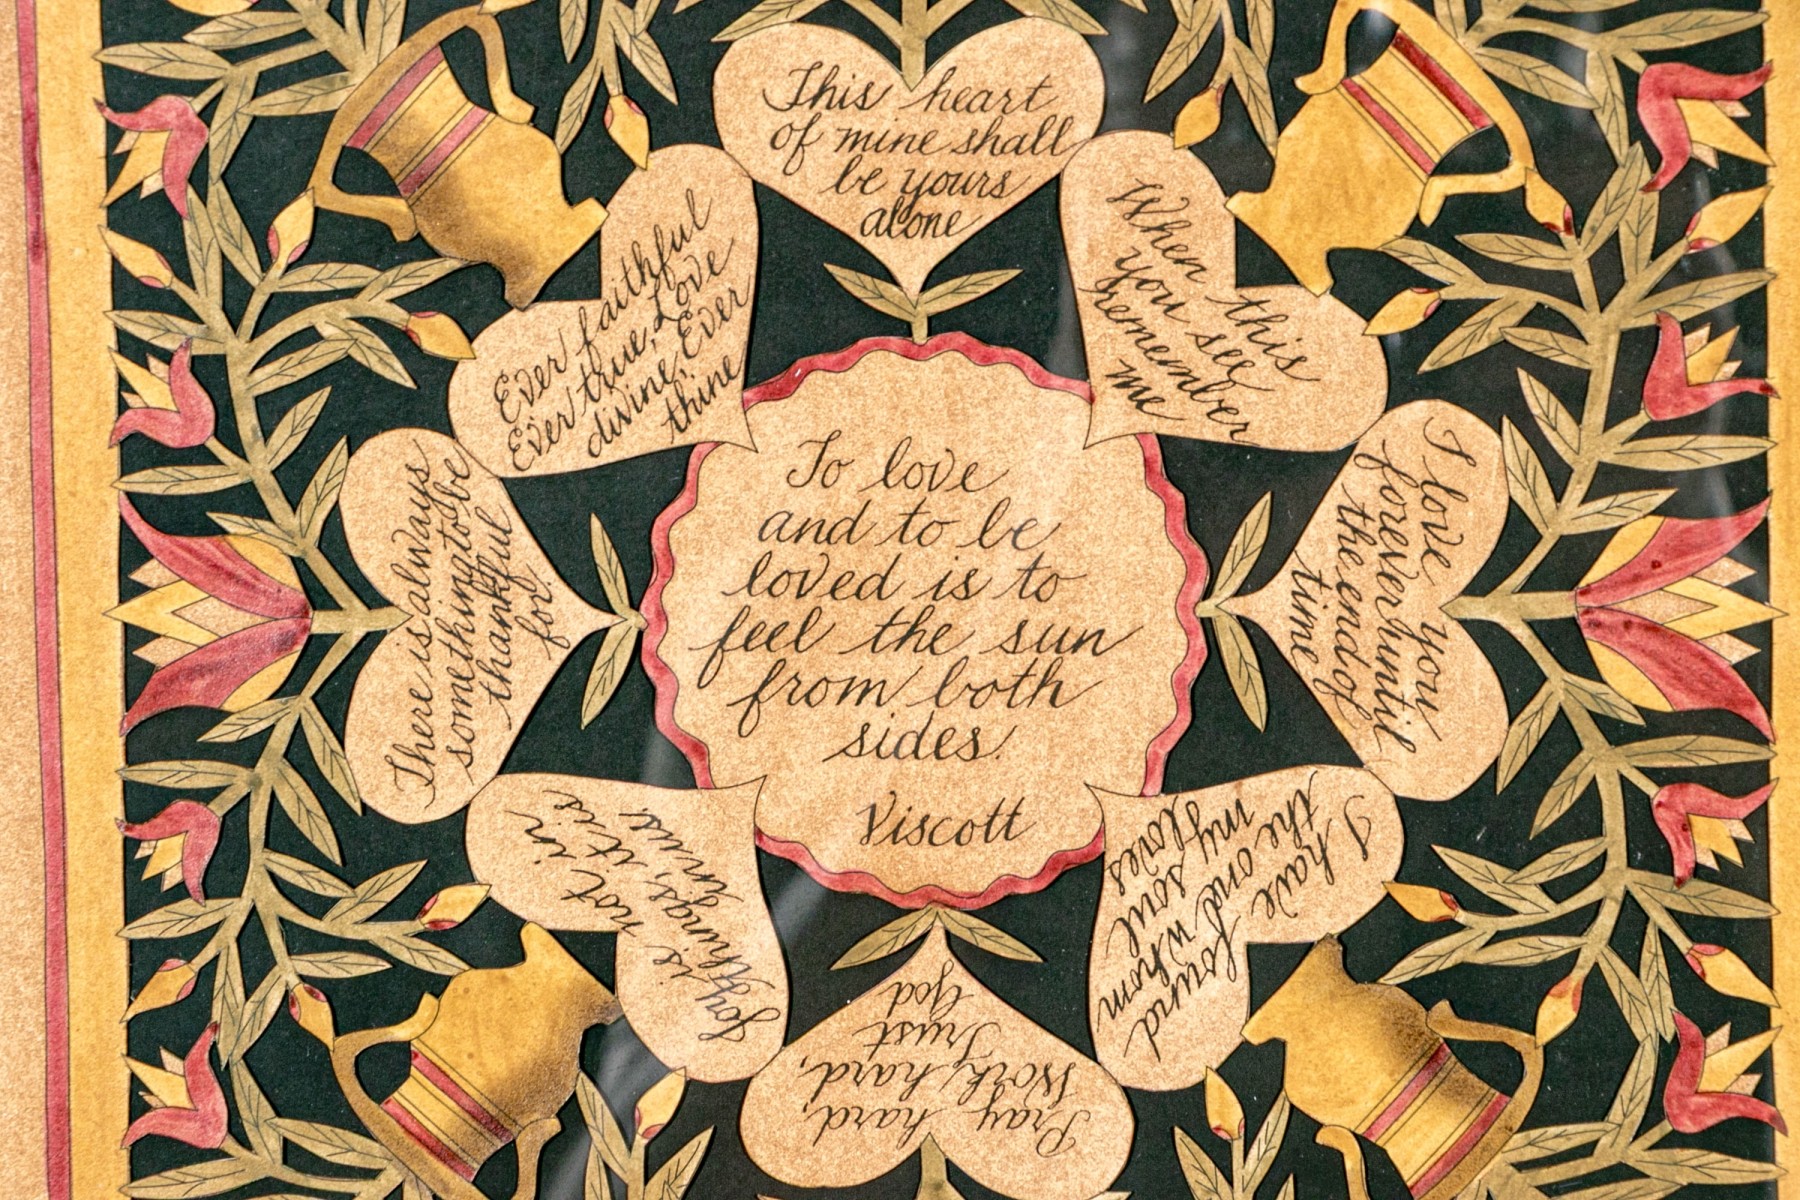 This heart
of mine shall
be yours
alone
When this
you see
Remember
me
I love you
forever until
the end of
time
I have found
the one whom
my soul
loves
Pray hard,
Work hard,
Trust
God
Joy is not in
things, it is
in us.
There is always
something to be
thankful
for.
Ever faithful
Ever true, Love
divine, Ever
thine
To love
and to be
loved is to
feel the sun
from both
sides.
Viscott